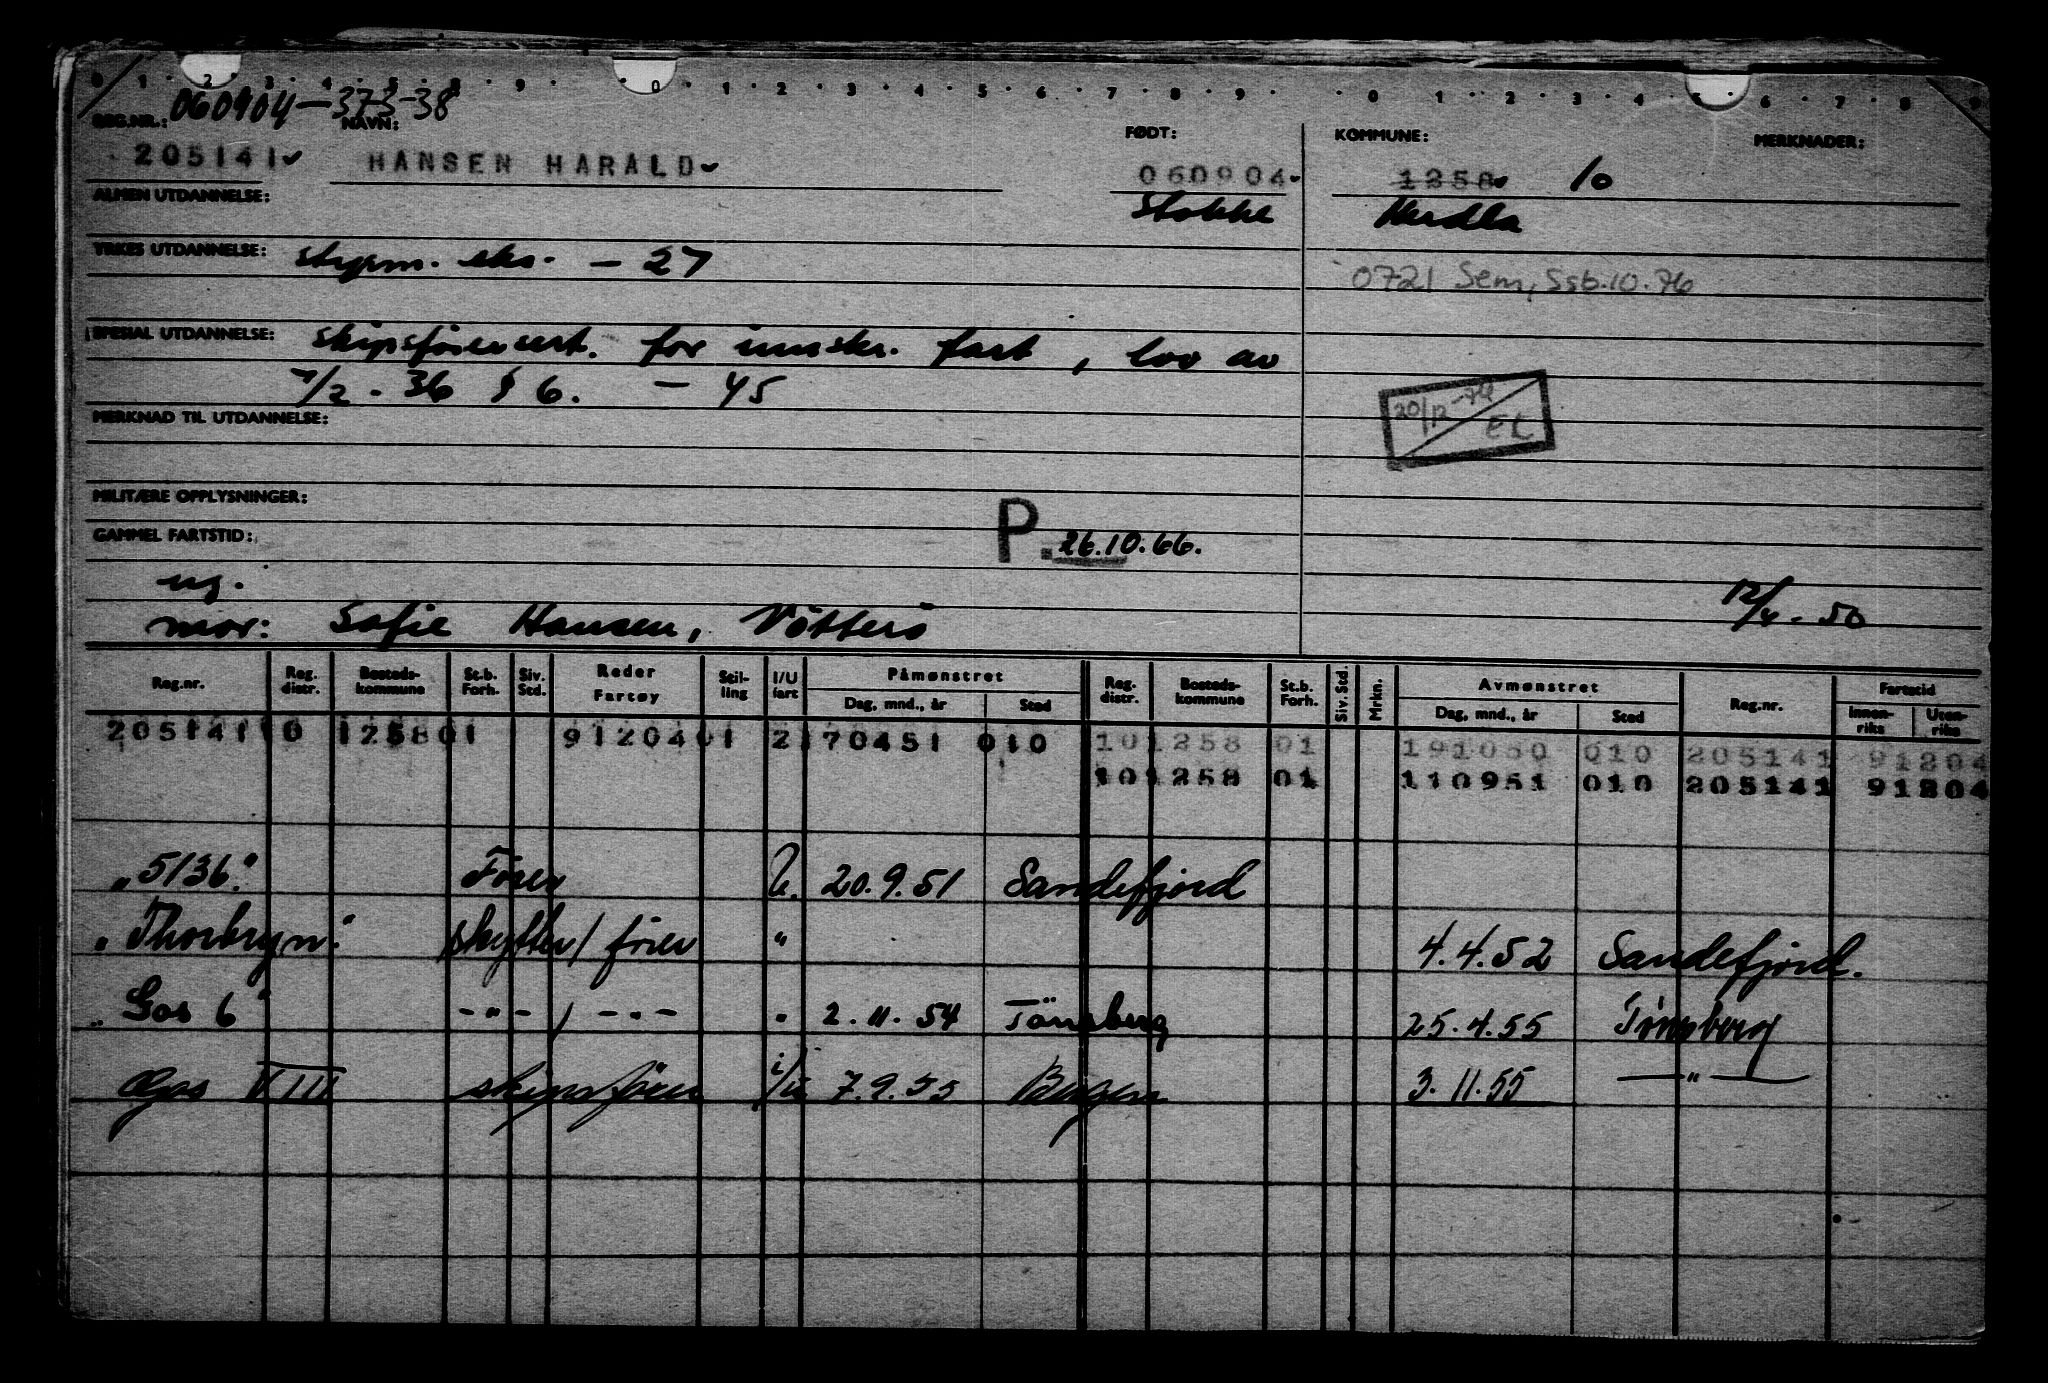 0 1 2 3 4 5 8 9 0 1 2 3 4 5 6 7 8 9 0 1 2 3 4 5 6 7 8 9
060904-373-38
REG.NR.: NAVN: FØDT: KOMMUNE: MERKNADER:
205141 HANSEN HARALD 060904 1258 10
ALMEN UTDANNELSE: Stokke Herdla
YRKES UTDANNELSE: styrm. eks. - 27
0721 Sem, Ssb.10.76
SPESIAL UTDANNELSE: skipsförersert. for innskr. fart, lov av
7/2 - 36 § 6. - 45
20/12-74 EL
MERKNAD TIL UTDANNELSE:
MILITÆRE OPPLYSNINGER:
GAMMEL FARTSTID: P. 26.10.66.
ug. 12/4-50
mor: Sofie Hansen, Nötterö
Reg.nr. Reg. distr. Bosteds-kommune St.b. Forh. Siv. Std. Reder Fartøy Stil-ling I/U fart Påmønstret Dag, mnd., år Sted Reg. distr. Bosteds-kommune St.b. Forh. Siv. Std Mrkn. Avmønstret Dag, mnd., år Sted Reg.nr. Fartstid Innen-riks Uten-riks
205141 10 1258 01 91204 01 2 170451 010 10 1258 01 191050 010 205141 91204
10 1258 01 110951 010 205141 91204
"5136." Förer U. 20.9.51 Sandefjord
"Thorbryn." skytter/förer " 4.4.52 Sandefjord.
"Gos 6" -"-/-"- " 2.11.54 Tönsberg 25.4.55 Tönsberg
Gos VIII skipsförer i/u 7.9.55 Bergen 3.11.55 -"-